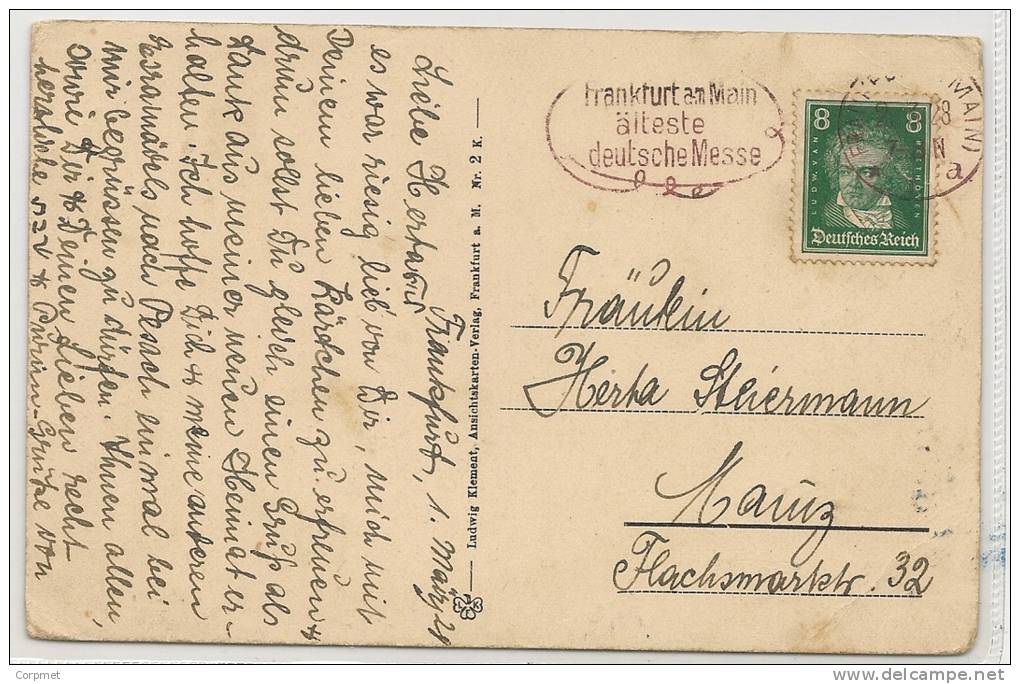 Frankfurt, 1. März 28
Liebe Herta
es war riesig lieb von Dir, mich mit
Deinem lieben Kärtchen zu erfreuen &
drum sollst Du gleich einen Gruß als
Dank aus meiner neuen Heimat er-
halten. Ich hoffe Dich & meine anderen
nach Pesach einmal bei
mir begrüssen zu dürfen. Ihnen allen,
sowie Dir & Deinen Lieben recht
herzliche & Purim-Grüße von
Ludwig Klement, Ansichtskarten-Verlag, Frankfurt a. M. Nr. 2 K.
Frankfurt am Main
älteste
deutsche Messe
8 8
LUDW. VAN BEETHOVEN
Deutsches Reich
Fräulein
Herta Steiermann
Mainz
Flachsmarktstr. 32
Corpmet
delcampe.net